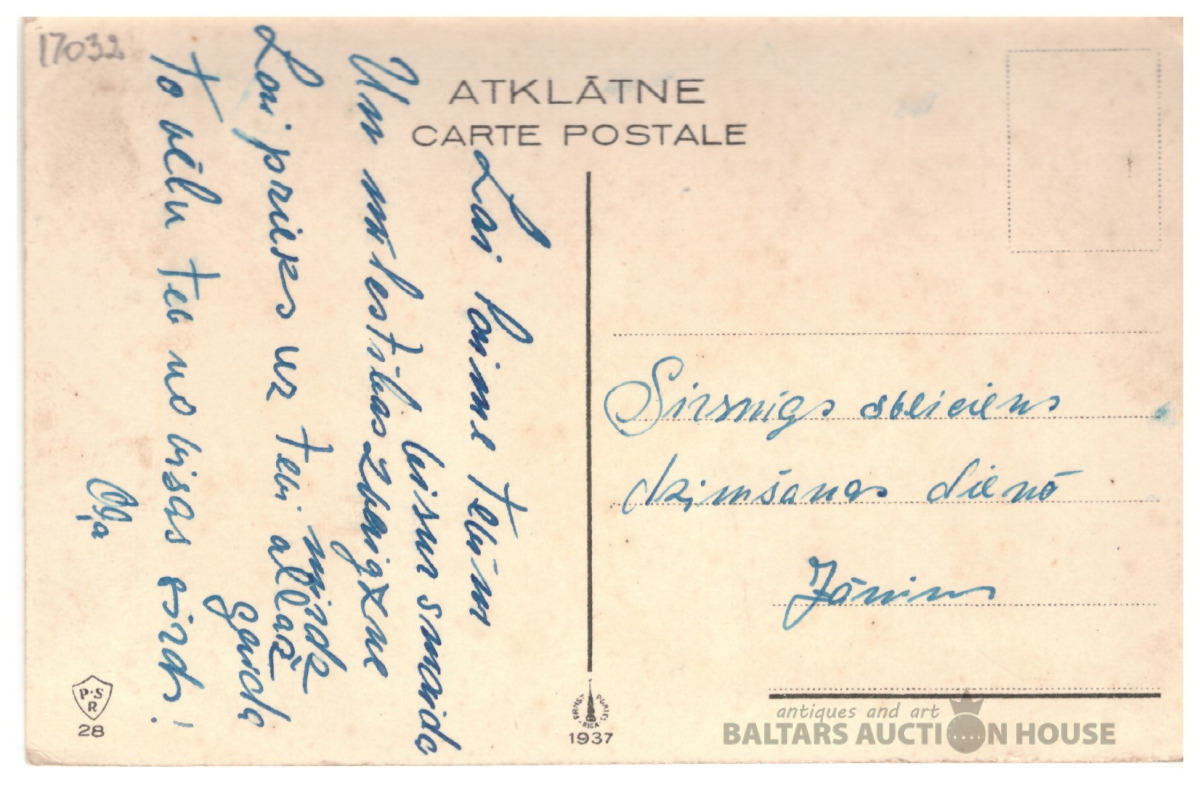 17032
ATKLĀTNE
CARTE POSTALE
Lai laime Tevim
visur smaida
Un mīlestības zvaigzne
mirdz
Lai prieks uz Tevi allaž
gaida
To vēlu Tev no visas sirds!
Oļa
Sirsnīgs sveiciens
dzimšanas dienā
Jānim
P.S
R
28
RIGA
1937
antiques and art
BALTARS AUCTION HOUSE